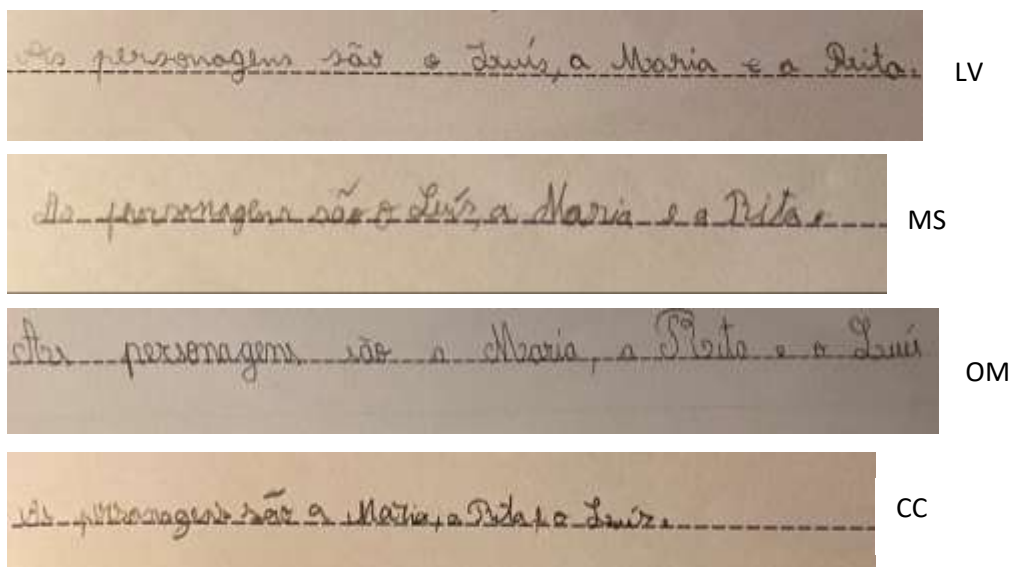 As personagens são o Luís, a Maria e a Rita.
LV
As personagens são o Luís, a Maria e a Rita.
MS
As personagens são a Maria, a Rita e o Luís
OM
As personagens são a Maria, a Rita e o Luís.
CC